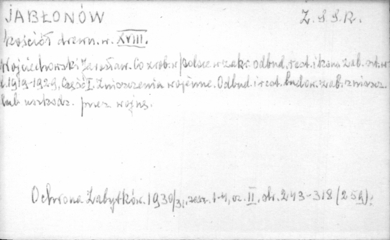 JABŁONÓW Z.S.S.R.
Kościół drewn. w. XVIII.
Wojciechowski Jarosław. Co zrob. w Polsce w zakr. odbud., rest. i kons. zab.
1919-1929, Część I. Zniszczenia wojenne. Odbud. i rest. budow. zab. zniszcz.
lub uszkodz. przez wojnę.
Ochrona Zabytków. 1930/31, zesz. 1-4, cz. II, str. 243-318 (259).